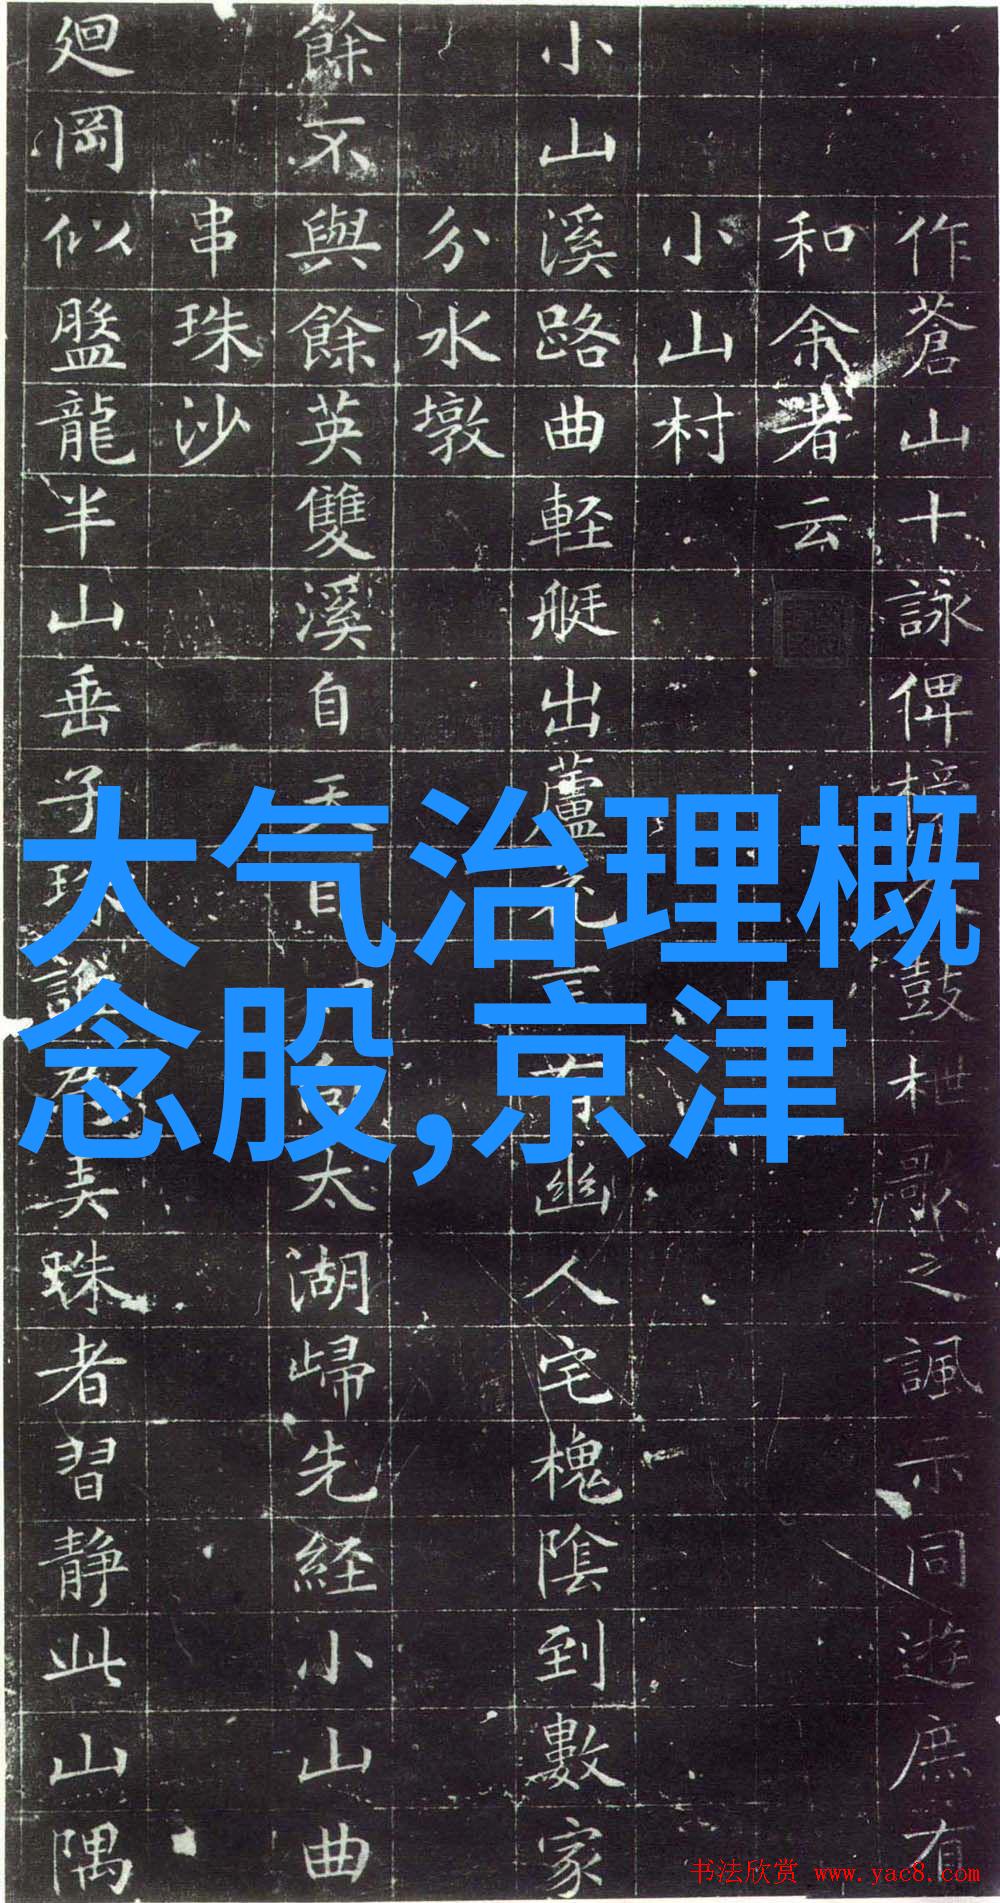 大气治理概
念股,京津
作蒼山十詠俾榜人鼓枻歌之諷示同遊庶有
和余者云
小山村
小山溪路曲軽艇出蘆花
幽人宅槐陰到數家
分水墩
餘不與餘英雙溪自天目
太湖歸先経小山曲
串珠沙
廻岡似盤龍半山垂子珠
美珠者習静此山隅
书法欣赏 www.yac8.com